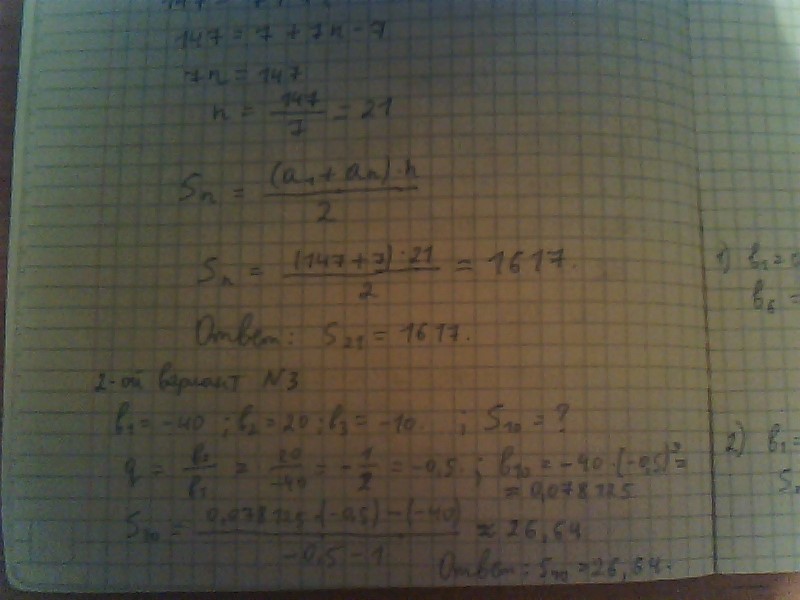 147 = 7 + 7n - 7
7n = 147
n = 147/7 = 21
Sn = (a1 + an) · n / 2
Sn = (147 + 7) · 21 / 2 = 1617.
Ответ: S21 = 1617.
2-ой вариант N3
b1 = -40 ; b2 = 20 ; b3 = -10. ; S10 = ?
q = b2/b1 = 20/-40 = -1/2 = -0,5. ; b10 = -40 · (-0,5)⁹ =
= 0,078125
S10 = 0,078125 · (-0,5) - (-40) / -0,5 - 1 ≈ 26,64
Ответ: S10 ≈ 26,64.
1) b1 =
b6 =
2) b1 =